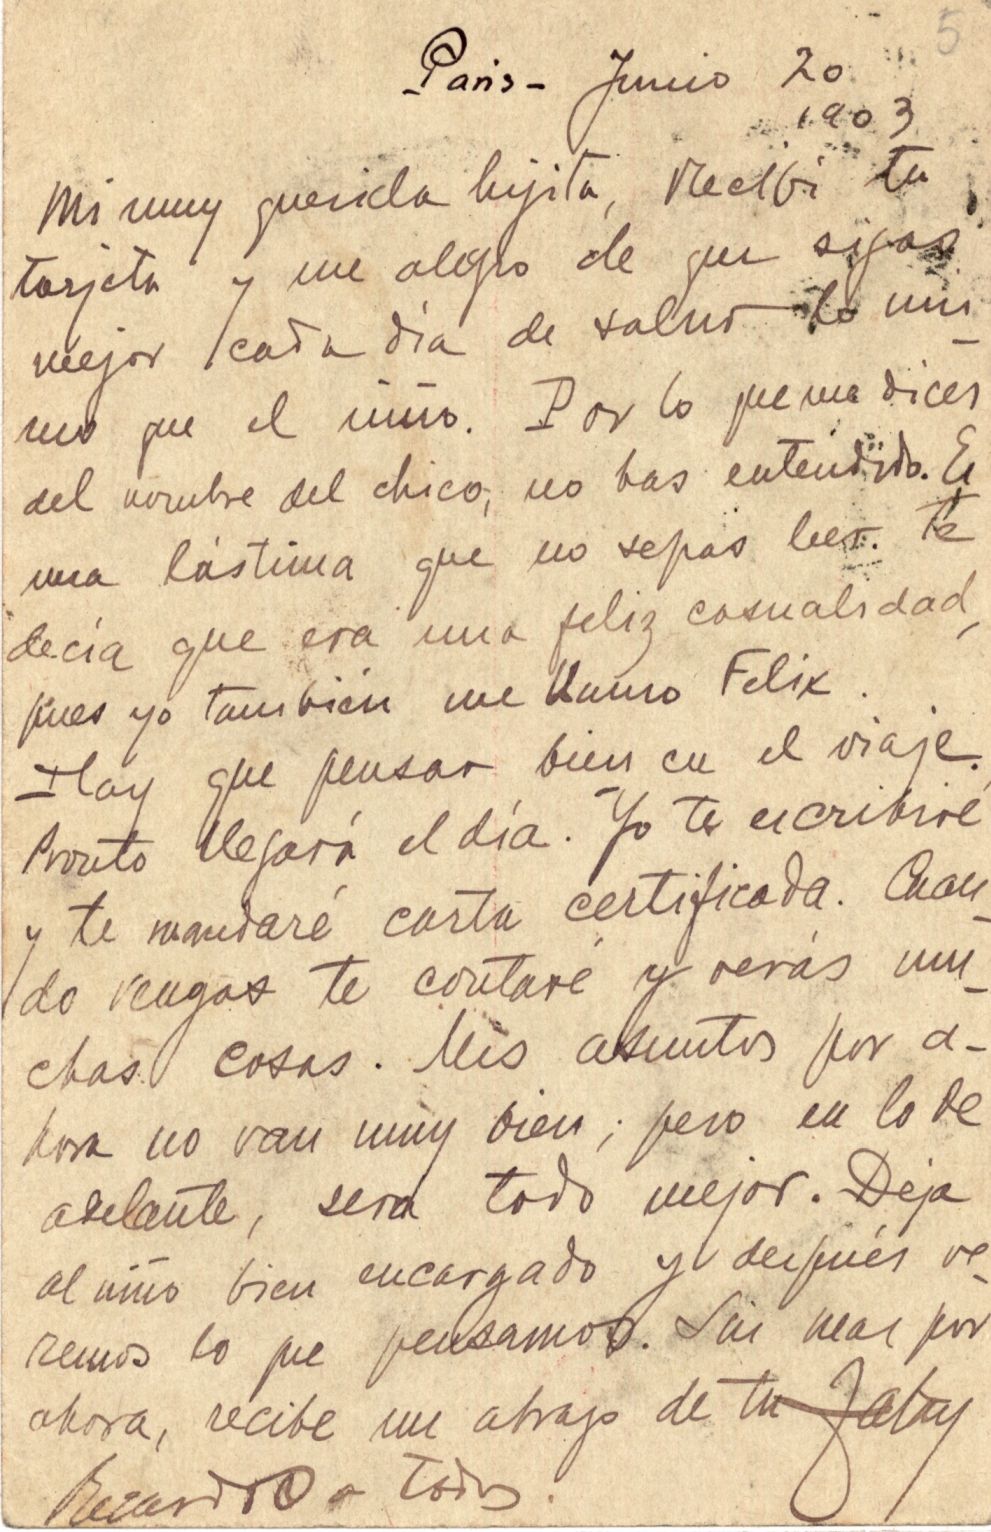 5
Paris - Junio 20
1903
Mi muy querida hijita, Recibí tu
tarjeta y me alegro de que sigas
mejor cada día de salud lo mis-
mo que el niño. Por lo que me dices
del nombre del chico, no has entendido. Es
una lástima que no sepas leer. Te
decía que era una feliz casualidad,
pues yo también me llamo Felix.
Hay que pensar bien en el viaje.
Pronto llegará el día. Yo te escribiré
y te mandaré carta certificada. Cuan-
do vengas te contaré y verás mu-
chas cosas. Mis asuntos por a-
hora no van muy bien; pero en lo de
adelante, sera todo mejor. Deja
al niño bien encargado y después ve-
remos lo que pensamos. Sin mas por
ahora, recibe un abrazo de tu
Recuerdo a todos.